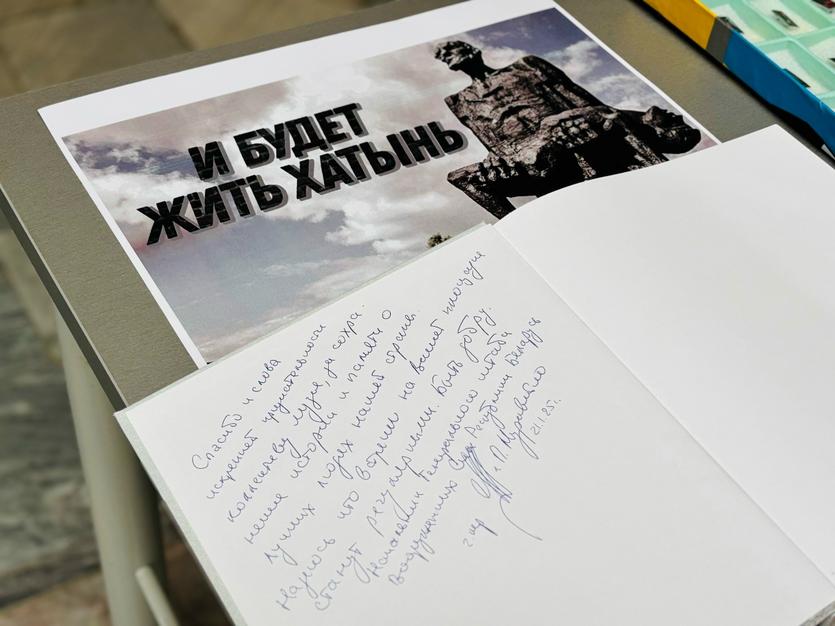 И БУДЕТ
ЖИТЬ ХАТЫНЬ
Спасибо и слова
искренней признательности
коллективу музея, за сохра-
нение истории и памяти о
лучших людях нашей страны.
Надеюсь что встречи на вашей площадке
станут регулярными. Быть добру.
Начальник Генерального штаба
Вооруженных Сил Республики Беларусь
г-м П. Муравейко
21.1.25г.